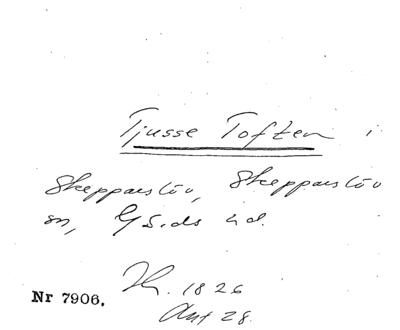 Tjusse Toften i
Skepparslöv, Skepparslöv
sn, Gärds hd.
Nr 7906. Th. 1826
Ant 28.